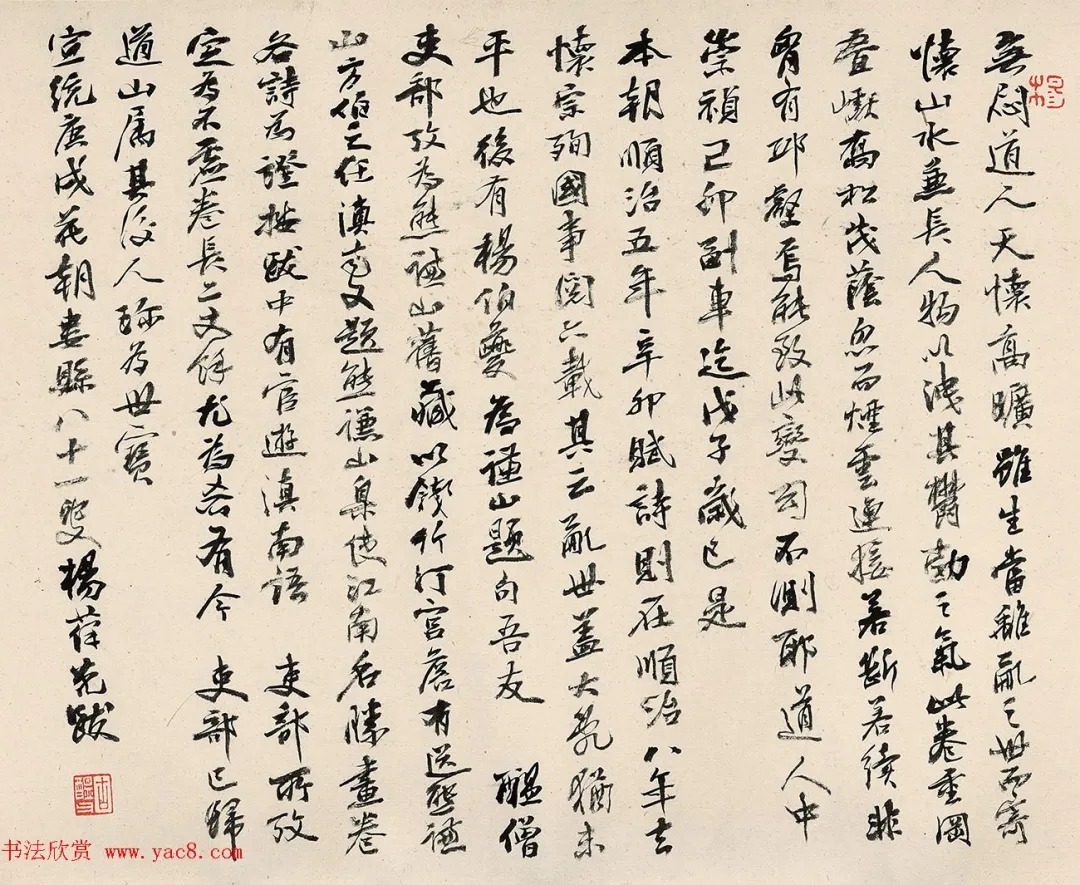 無悶道人天懷高曠雖生當離亂之世而寄
懷山水兼長人物以洩其鬱勃之氣此卷重岡
疊巘喬松茂蔭忽而煙雲連接若斷若續非
胷有邱壑焉能致此變幻不測耶道人中
崇禎己卯副車迄戊子歲已是
本朝順治五年辛卯賦詩則在順治八年去
懷宗殉國事閱六載其云亂世蓋大亂猶未
平也後有楊伯夔為謹山題句吾友 醞僧
吏部攷為熊謙山舊藏以錢竹汀宮詹有送熊謙
山方伯之任滇南又題熊謙山臬使江南名勝畫卷
各詩為證按跋中有官遊滇南語 吏部所攷
定為不虛卷長二丈餘尤為希有今 吏部已歸
道山屬其後人珍為世寶
宣統庚戌花朝婁縣八十一叟楊葆光跋
书法欣赏 www.yac8.com